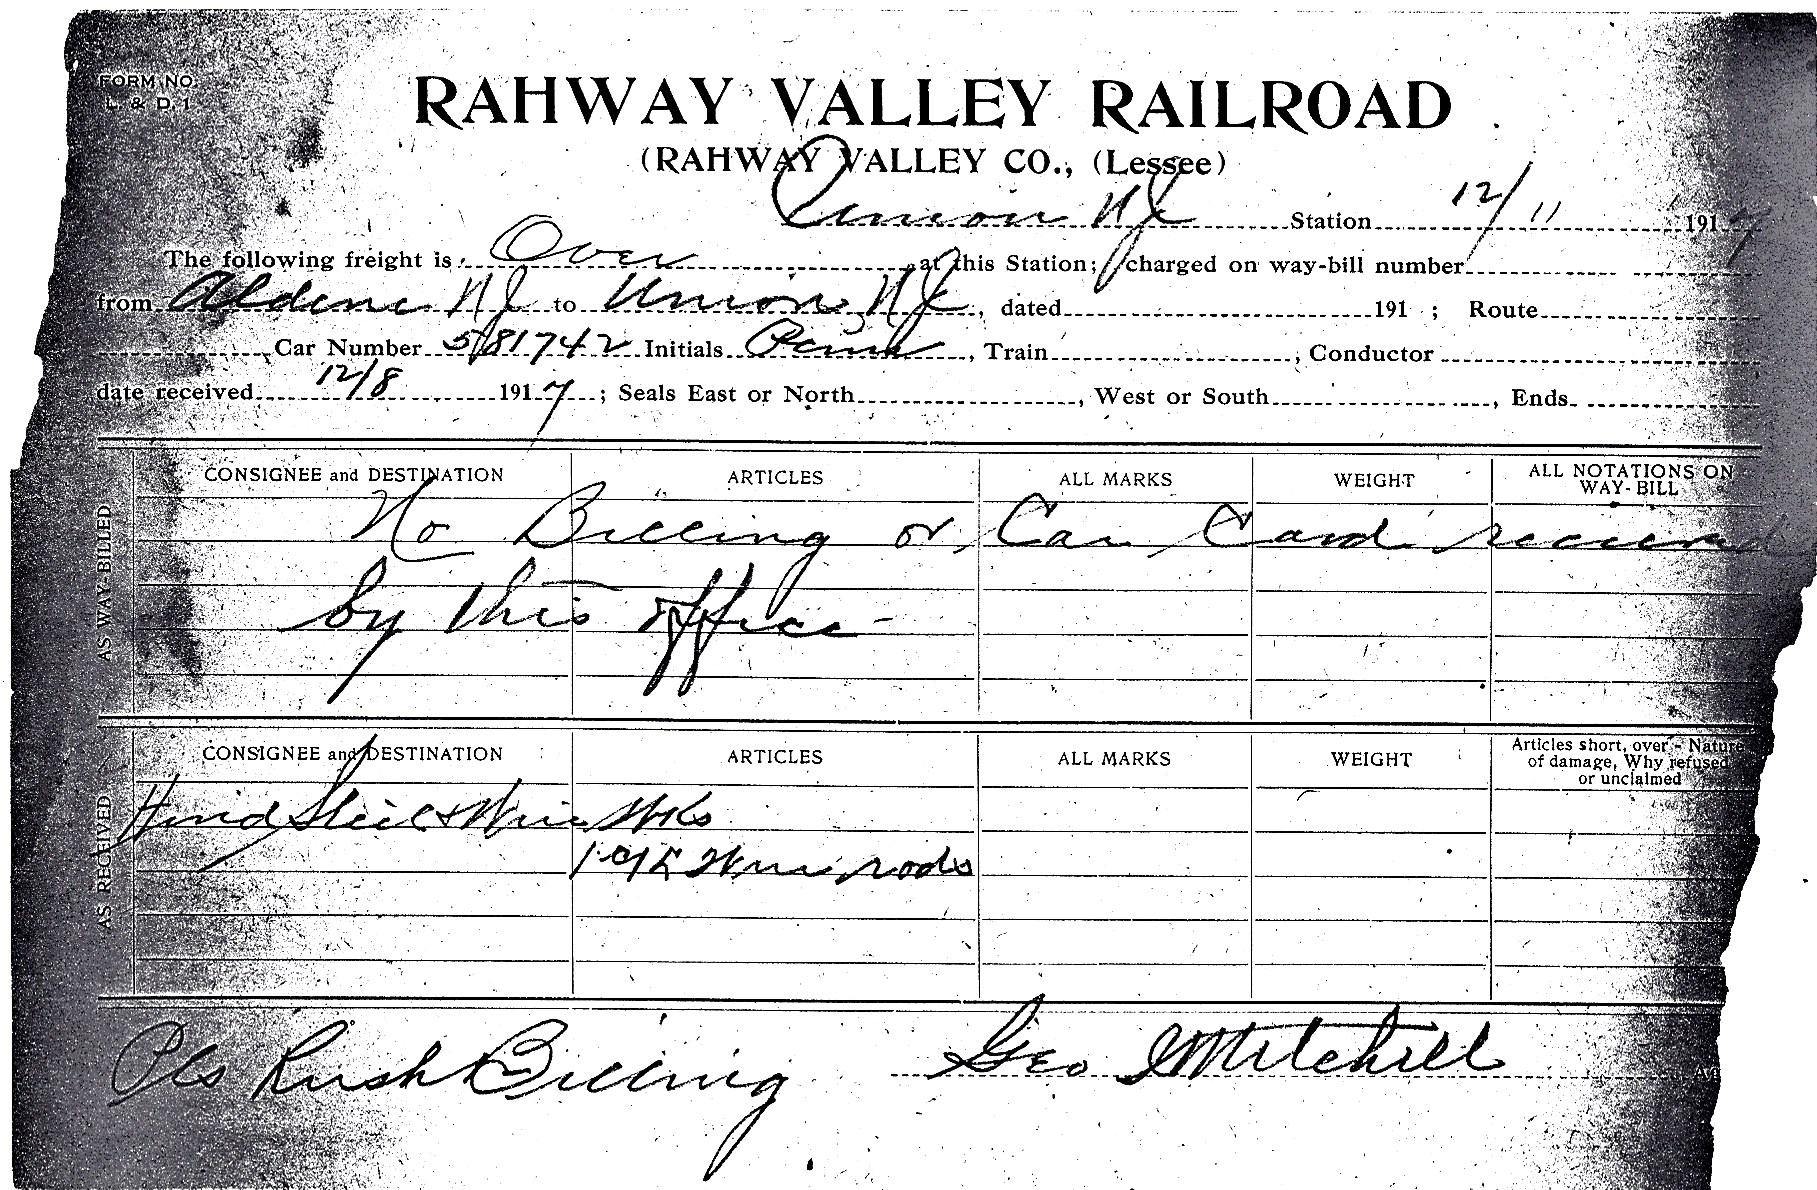 FORM NO.
L. & D. 1
RAHWAY VALLEY RAILROAD
(RAHWAY VALLEY CO., (Lessee)
Union NJ Station 12/11 1917
The following freight is Over at this Station; charged on way-bill number
from Aldene NJ to Union, NJ, dated 191 ; Route
Car Number 581742 Initials Penn, Train , Conductor
date received 12/8 1917 ; Seals East or North , West or South , Ends
AS WAY-BILLED
CONSIGNEE and DESTINATION ARTICLES ALL MARKS WEIGHT ALL NOTATIONS ON WAY-BILL
No Billing or Car Card received
by this office
AS RECEIVED
CONSIGNEE and DESTINATION ARTICLES ALL MARKS WEIGHT Articles short, over - Nature of damage, Why refused or unclaimed
Steel & Wire Wks
Wire rods
Pls Rush Billing Geo Mitchell